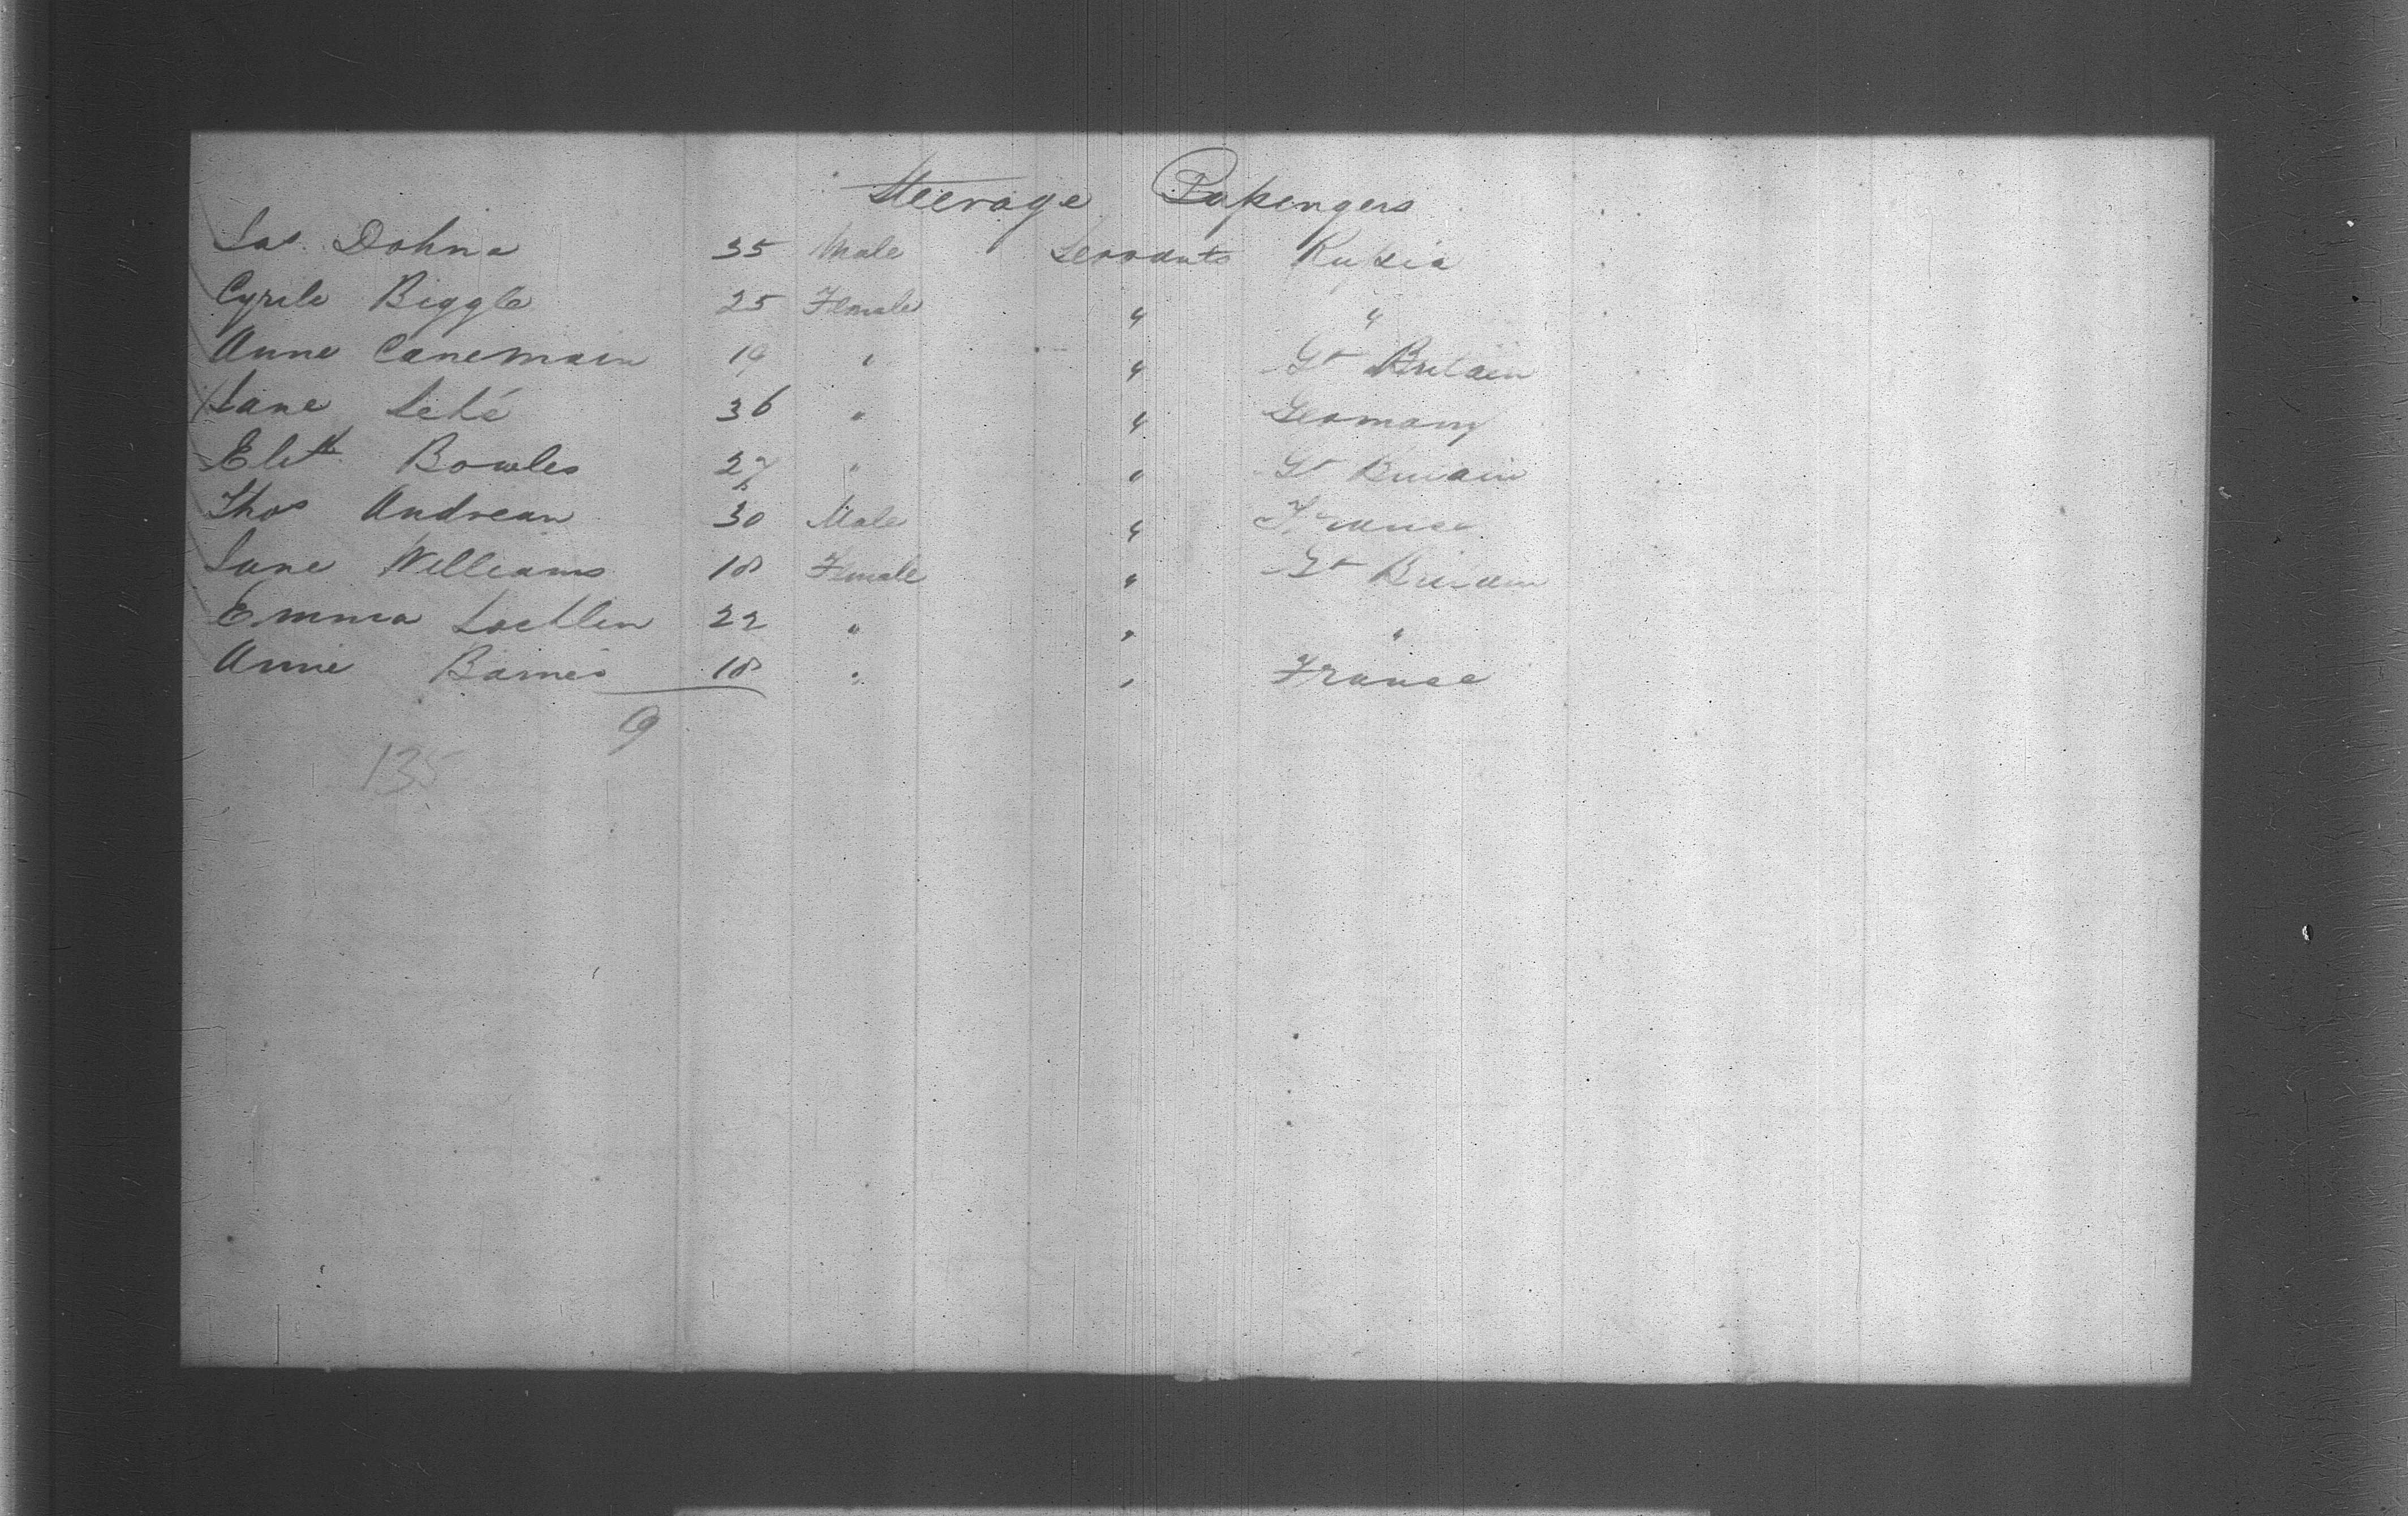 Steerage Passengers
Jas Dohna 35 Male Servants Russia
Cyrile Biggle 25 Female " "
Anne Canemain 19 " " Gt Britain
Jane Leté 36 " " Germany
Elizth Bowles 27 " " Gt Britain
Thos Andrean 30 Male " France
Jane Williams 18 Female " Gt Britain
Emma Lochlen 22 " " "
Annie Barnes 18 " " France
9
135